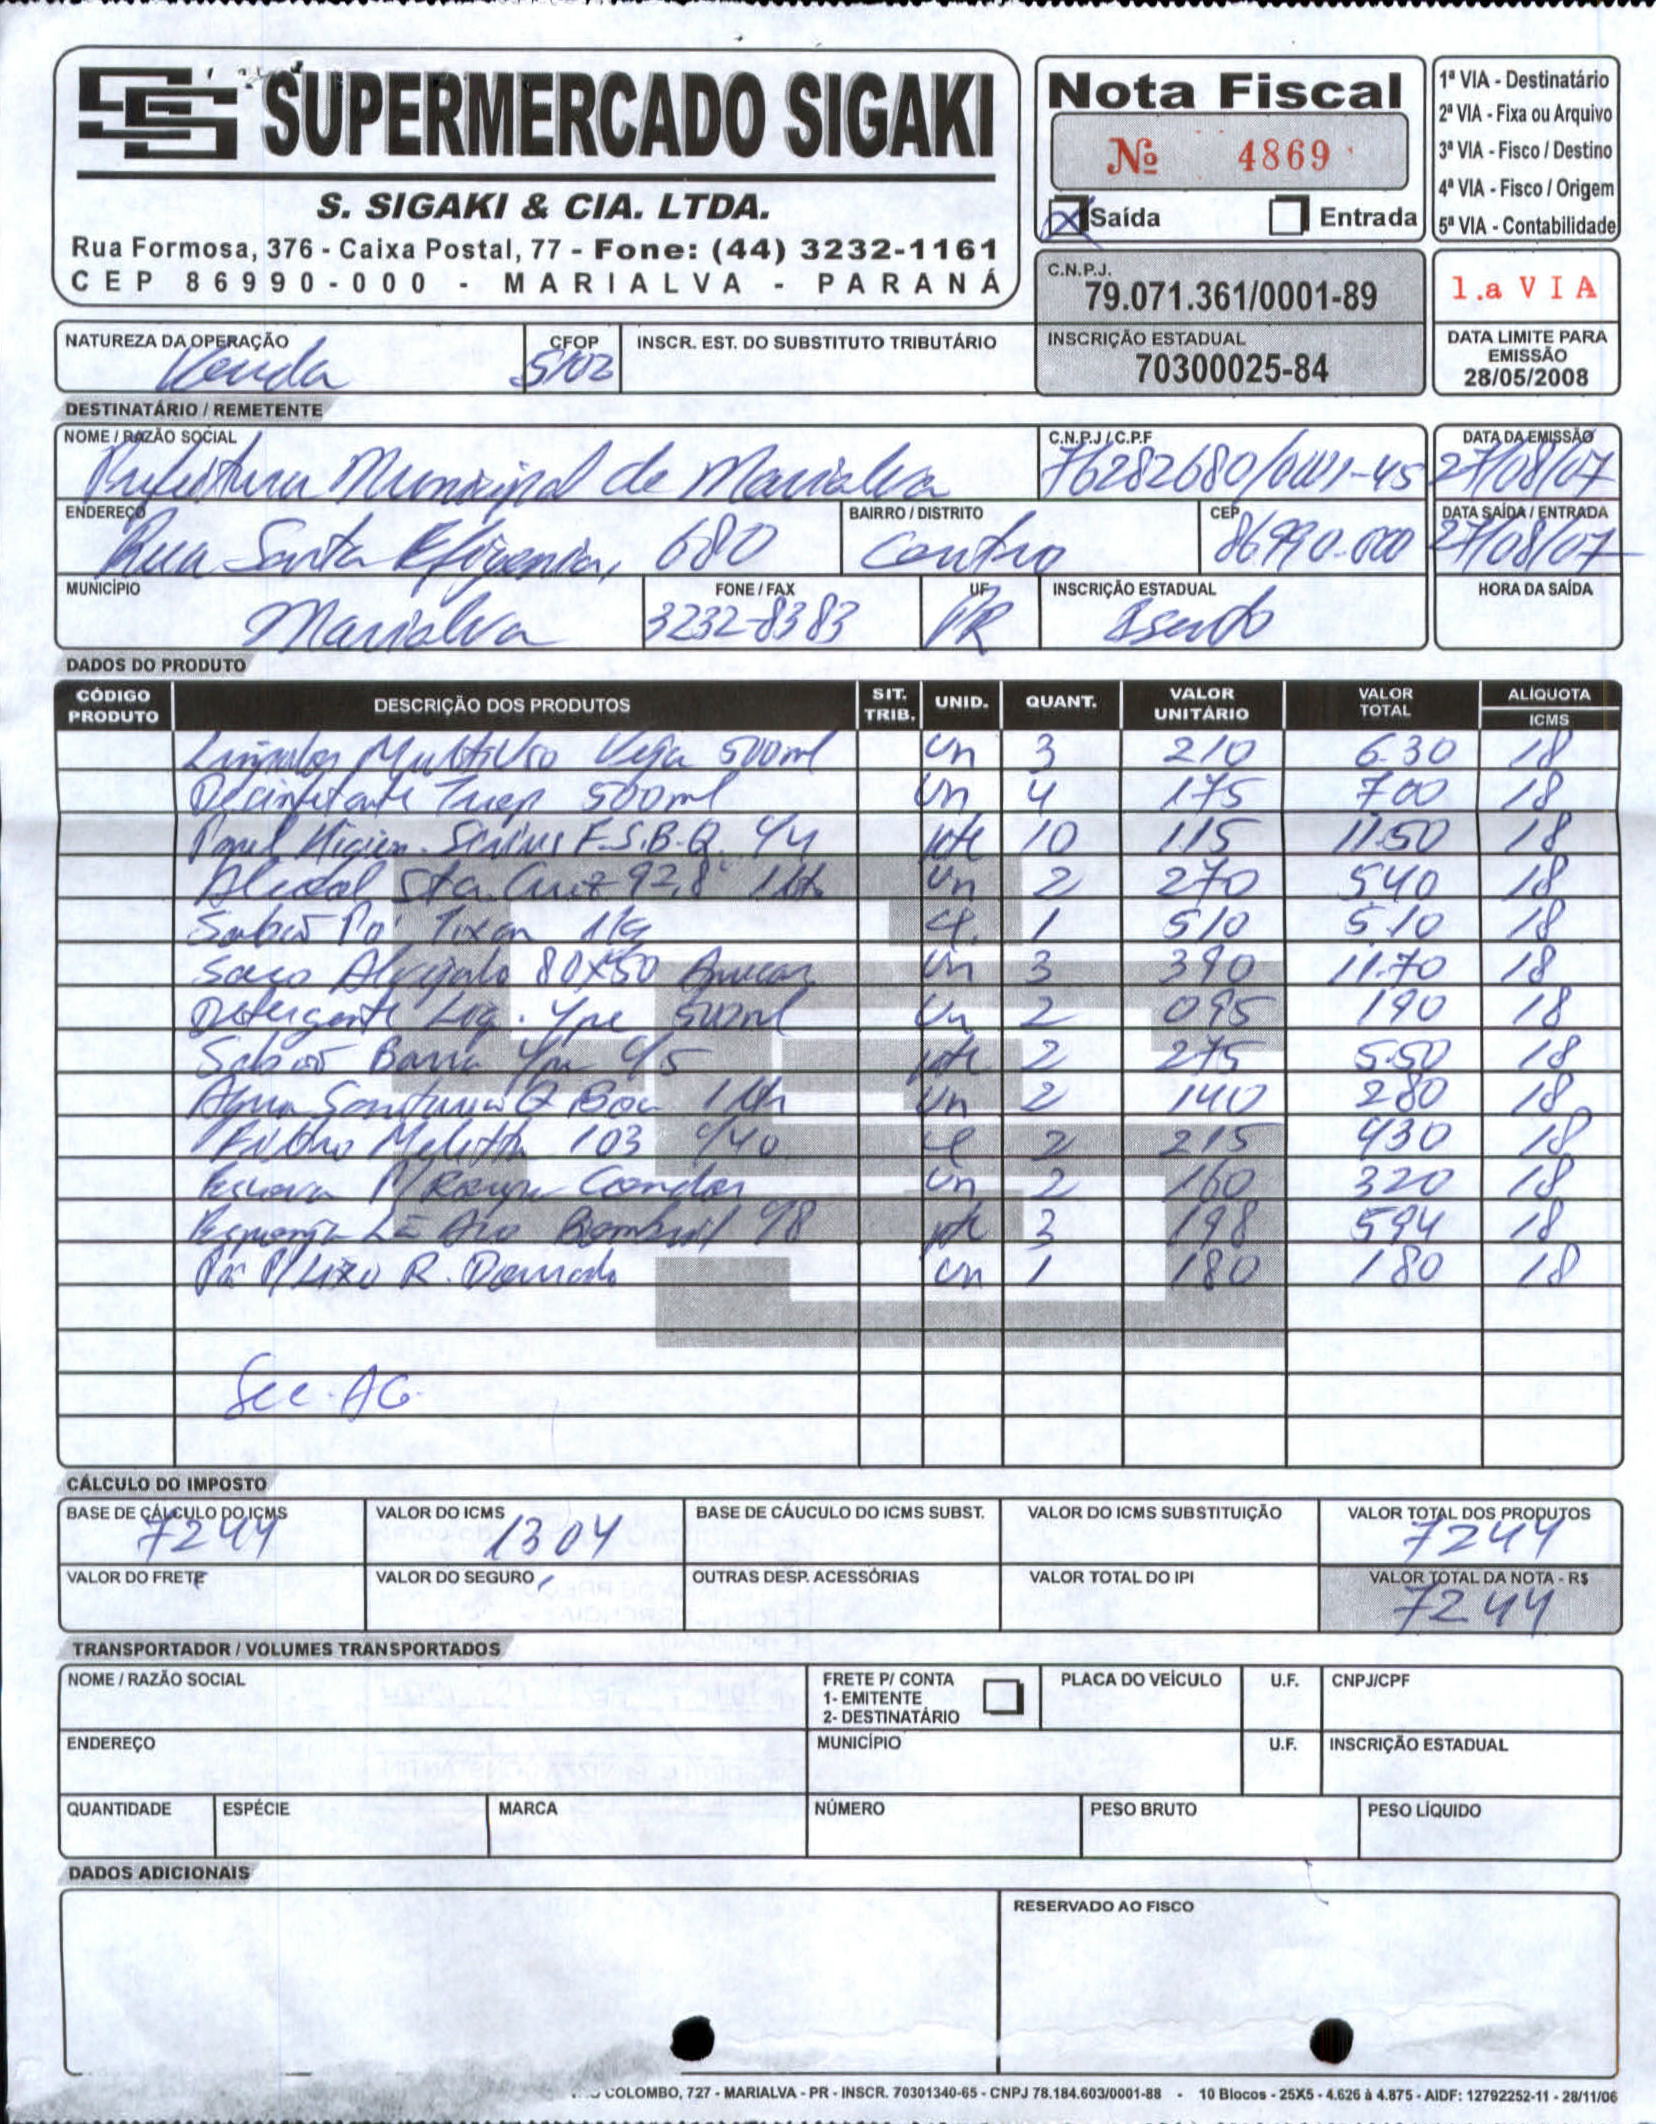 SUPERMERCADO SIGAKI
S. SIGAKI & CIA. LTDA.
Rua Formosa, 376 - Caixa Postal, 77 - Fone: (44) 3232-1161
CEP 86990-000 - MARIALVA - PARANÁ
Nota Fiscal
Nº 4869
X Saída Entrada
1ª VIA - Destinatário
2ª VIA - Fixa ou Arquivo
3ª VIA - Fisco / Destino
4ª VIA - Fisco / Origem
5ª VIA - Contabilidade
C.N.P.J.
79.071.361/0001-89
1.a VIA
NATUREZA DA OPERAÇÃO CFOP INSCR. EST. DO SUBSTITUTO TRIBUTÁRIO
Venda 5102
INSCRIÇÃO ESTADUAL
70300025-84
DATA LIMITE PARA
EMISSÃO
28/05/2008
DESTINATÁRIO / REMETENTE
NOME / RAZÃO SOCIAL C.N.P.J / C.P.F DATA DA EMISSÃO
Prefeitura Municipal de Marialva 76282680/0001-45 27/08/07
ENDEREÇO BAIRRO / DISTRITO CEP DATA SAÍDA / ENTRADA
Rua Santa Efigenia, 680 Centro 86990.000 27/08/07
MUNICÍPIO FONE / FAX UF INSCRIÇÃO ESTADUAL HORA DA SAÍDA
Marialva 3232-8383 PR Isento
DADOS DO PRODUTO
CÓDIGO PRODUTO DESCRIÇÃO DOS PRODUTOS SIT. TRIB. UNID. QUANT. VALOR UNITÁRIO VALOR TOTAL ALÍQUOTA ICMS
Limpador Multiuso Veja 500ml un 3 210 6.30 18
500ml un 4 175 700 18
Papel Higien. F.S.B.Q. c/4 pte 10 115 11.50 18
Alcool Sta. Cruz 92,8° 1 lt un 2 270 540 18
Sabão Pó Tixan 1kg cx 1 510 5.10 18
Saco Alvejado 80x50 un 3 390 11.70 18
Detergente Liq. Ype 500ml un 2 095 190 18
Sabão Barra Ype c/5 pte 2 275 5.50 18
Agua Sanitaria Q Boa 1 lt un 2 140 280 18
Filtro Melitta 103 c/40 cx 2 215 430 18
Escova P/ Roupa Condor un 2 160 320 18
Esponja Lã Aço Bombril c/8 pte 3 198 594 18
Pá P/ Lixo R. un 1 180 180 18
Sec. AG.
CÁLCULO DO IMPOSTO
BASE DE CÁLCULO DO ICMS VALOR DO ICMS BASE DE CÁUCULO DO ICMS SUBST. VALOR DO ICMS SUBSTITUIÇÃO VALOR TOTAL DOS PRODUTOS
7244 1304 7244
VALOR DO FRETE VALOR DO SEGURO OUTRAS DESP. ACESSÓRIAS VALOR TOTAL DO IPI VALOR TOTAL DA NOTA - R$
7244
TRANSPORTADOR / VOLUMES TRANSPORTADOS
NOME / RAZÃO SOCIAL FRETE P/ CONTA PLACA DO VEÍCULO U.F. CNPJ/CPF
1- EMITENTE
2- DESTINATÁRIO
ENDEREÇO MUNICÍPIO U.F. INSCRIÇÃO ESTADUAL
QUANTIDADE ESPÉCIE MARCA NÚMERO PESO BRUTO PESO LÍQUIDO
DADOS ADICIONAIS
RESERVADO AO FISCO
COLOMBO, 727 - MARIALVA - PR - INSCR. 70301340-65 - CNPJ 78.184.603/0001-88 - 10 Blocos - 25X5 - 4.626 à 4.875 - AIDF: 12792252-11 - 28/11/06